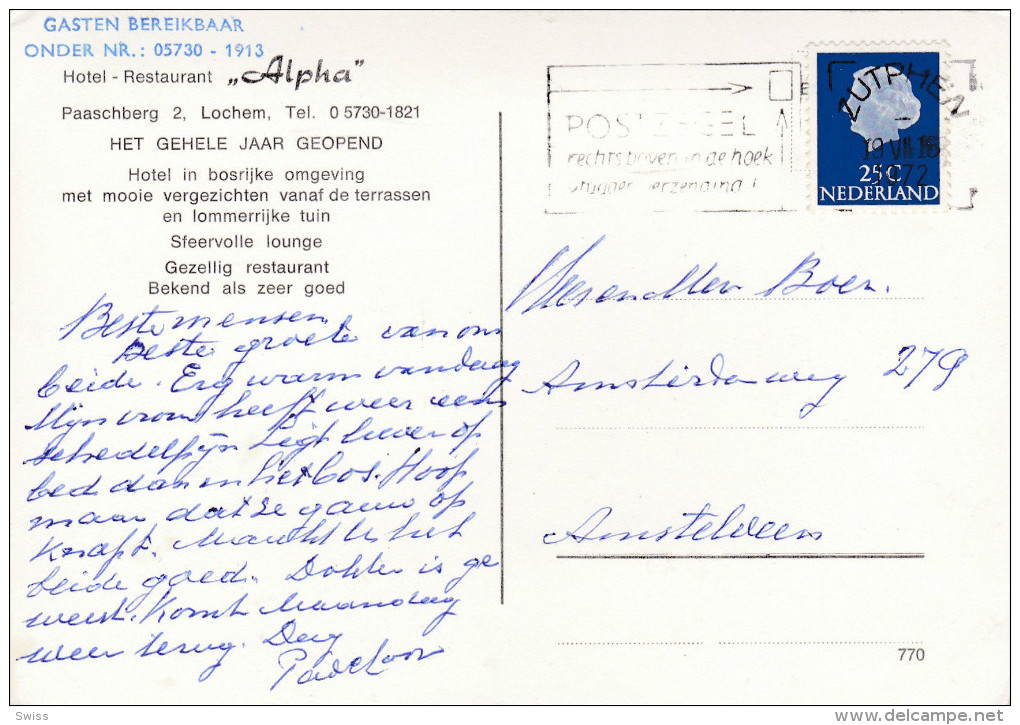 GASTEN BEREIKBAAR
ONDER NR.: 05730 - 1913
Hotel - Restaurant „Alpha"
Paaschberg 2, Lochem, Tel. 0 5730-1821
HET GEHELE JAAR GEOPEND
Hotel in bosrijke omgeving
met mooie vergezichten vanaf de terrassen
en lommerrijke tuin
Sfeervolle lounge
Gezellig restaurant
Bekend als zeer goed
Beste mensen
Beste groete van ons
beide. Erg warm vandaag
Mijn vrouw heeft weer eens
schedelpijn Ligt liever op
bed dan in het bos. Hoop
maar dat ze gauw op
knapt. Maakt U het
beide goed. Dokter is ge
weest. Komt Maandag
weer terug. Dag
POSTZEGEL
rechtsboven in de hoek
vlugger verzending!
ZUTPHEN
19 VII 16
1972
25 C
NEDERLAND
Boer.
Amsterdamweg 279
Amstelveen
770
Swiss
www.delcampe.net